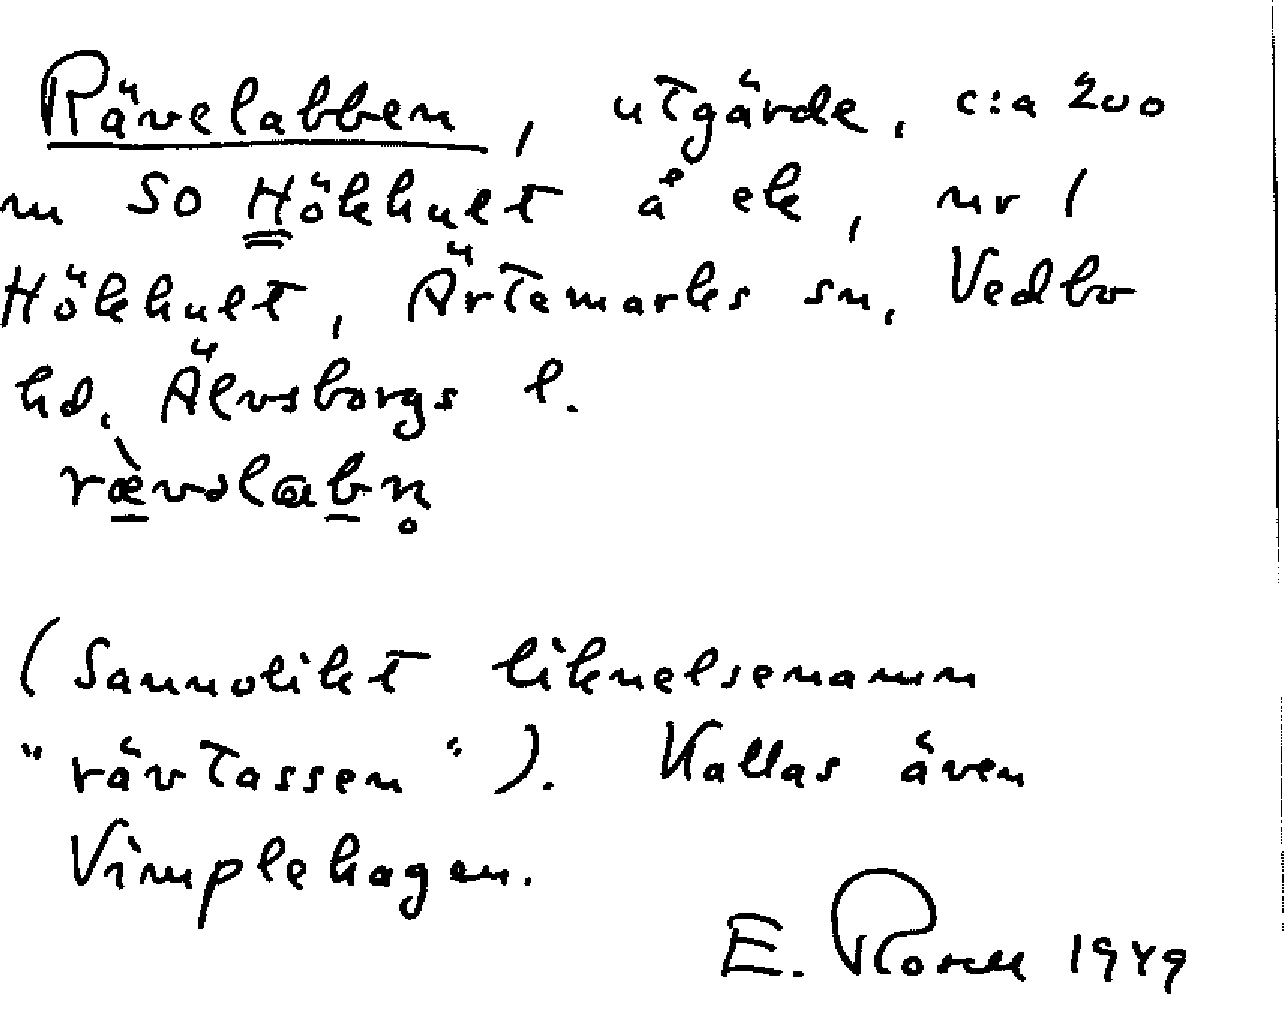 Rävelabben, utgärde, c:a 200
m SO Hökhult å ek, nr 1
Hökhult, Ärtemarks sn, Vedbo
hd, Älvsborgs l.
(Sannolikt liknelsenamn
"rävtassen"). Kallas även
Vimplehagen.
E. Rosell 1949